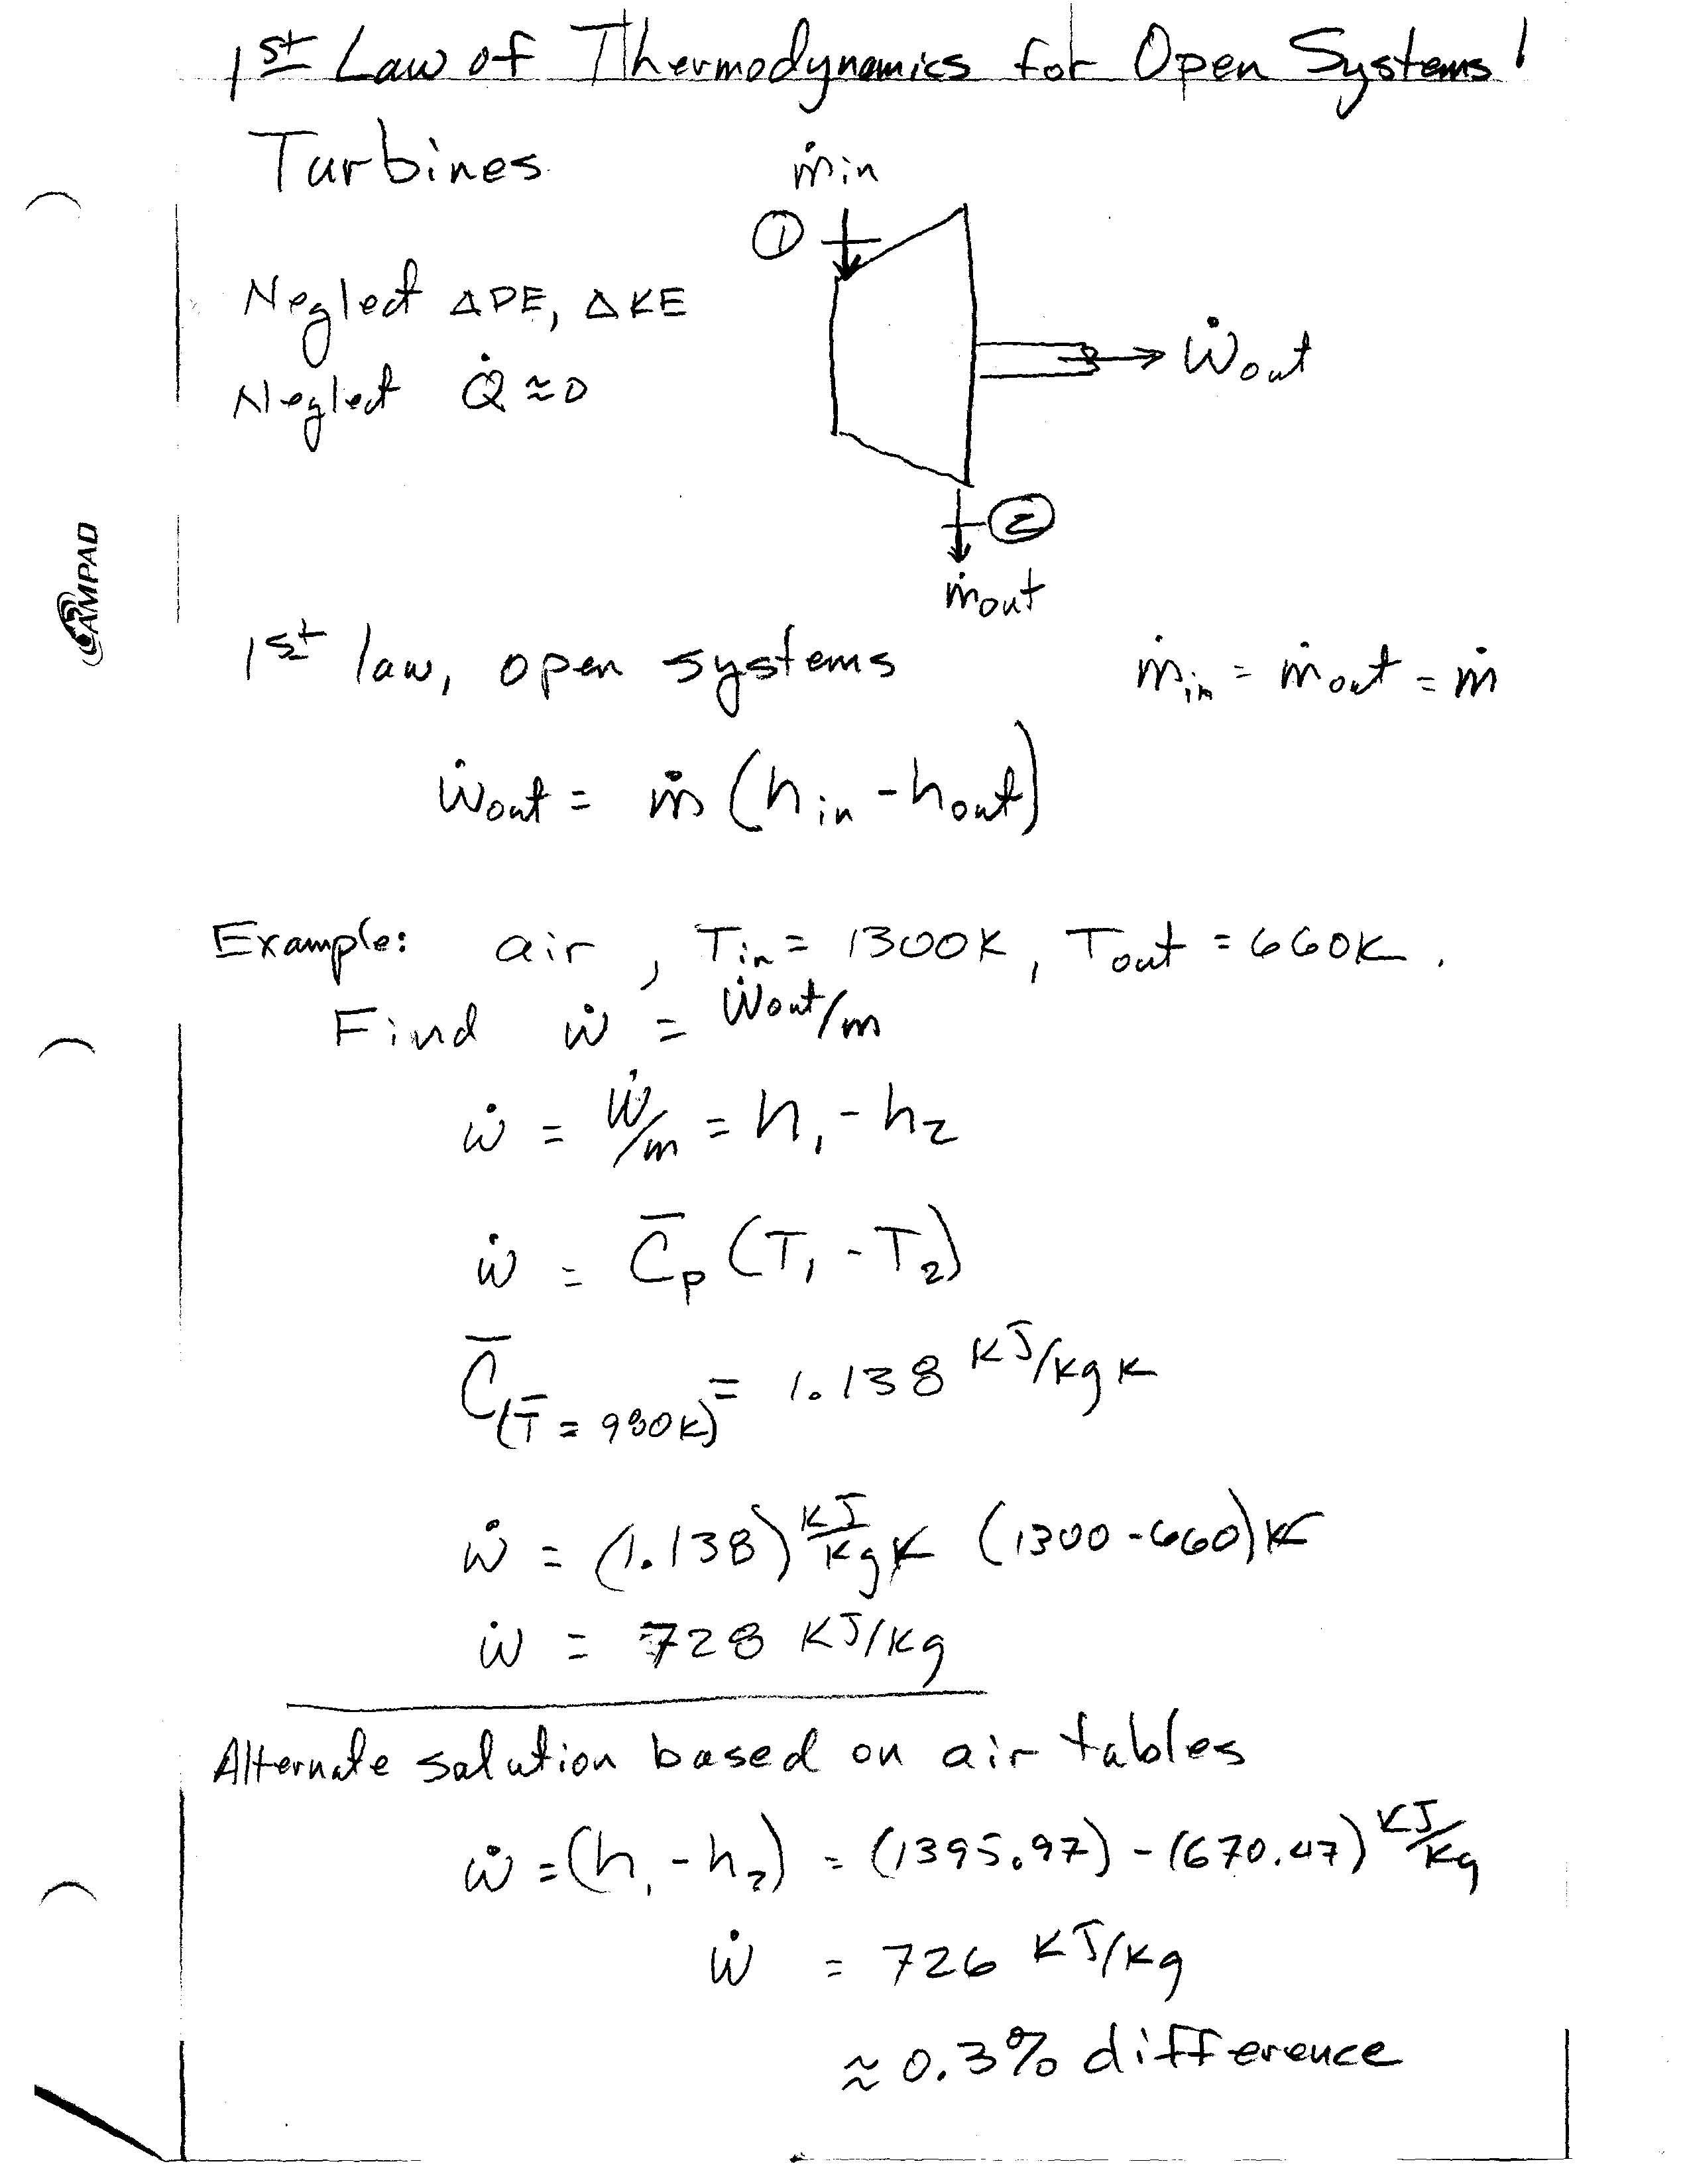 1st Law of Thermodynamics for Open Systems
Turbines
ṁin
①
Neglect ΔPE, ΔKE
Ẇout
Neglect Q̇ ≈ 0
②
ṁout
AMPAD
1st law, open systems
ṁin = ṁout = ṁ
Ẇout = ṁ (hin - hout)
Example: air, Tin = 1300K, Tout = 660K.
Find ẇ = Ẇout/m
ẇ = Ẇ/m = h1 - h2
ẇ = C̄p (T1 - T2)
C̄(T̄ = 980K) = 1.138 KJ/kg K
ẇ = (1.138) KJ/kg K (1300 - 660) K
ẇ = 728 KJ/kg
Alternate solution based on air tables
ẇ = (h1 - h2) = (1395.97) - (670.47) KJ/kg
ẇ = 726 KJ/kg
≈ 0.3% difference